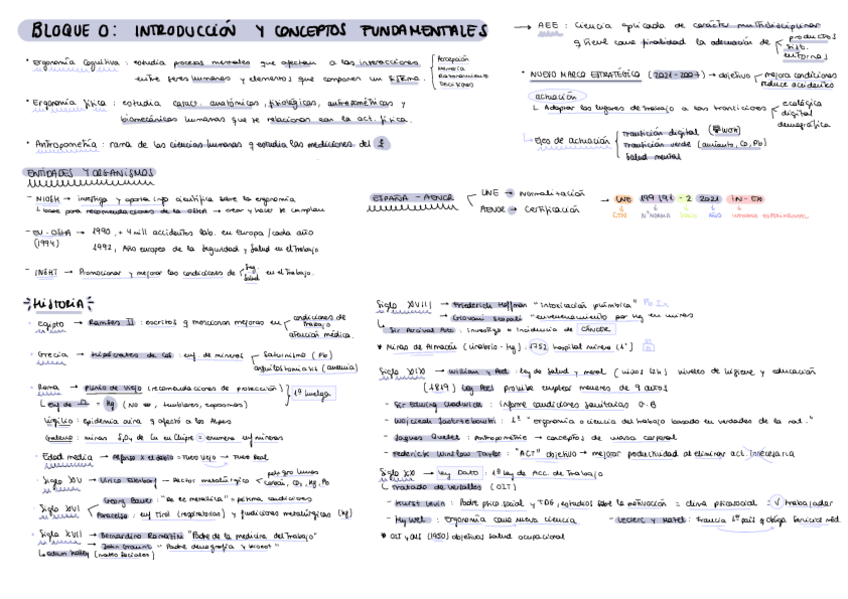 BLOQUE 0: INTRODUCCIÓN Y CONCEPTOS FUNDAMENTALES
• Ergonomía Cognitiva: estudia procesos mentales que afectan a las interacciones
entre seres humanos y elementos que componen un sistema.
Percepción
Memoria
Razonamiento
• Ergonomía física: estudia caract. anatómicas, fisiológicas, antropométricas y
biomecánicas humanas que se relacionan con la act. física.
• Antropometría: rama de las ciencias humanas q estudia las mediciones del
→ AEE: Ciencia aplicada de carácter multidisciplinar
q tiene como finalidad la adecuación de
productos
sist.
entornos
• NUEVO MARCO ESTRATÉGICO (2021-2027) → objetivo
mejora condiciones
reduce accidentes
actuación
↳ Adaptar los lugares de trabajo a las transiciones
ecológica
digital
demográfica
↳ Ejes de actuación
Transición digital
Transición verde (amianto, CO, Pb)
Salud mental
ENTIDADES Y ORGANISMOS
- NIOSH → investiga y aporta info científica sobre la ergonomía
↳ base para recomendaciones de la OSHA → crear y hacer se cumplan
- EU-OSHA → 1990, + 4 mill accidentes lab. en europa/cada año
(1994) 1992, Año europeo de la Seguridad y Salud en el Trabajo
- INSHT → Promocionar y mejorar las condiciones de
Seg.
Salud
en el trabajo.
ESPAÑA - AENOR
UNE → Normalización
AENOR → Certificación
→ UNE 199 191 - 2 2021 IN - EX
HISTORIA
• Egipto → Ramses II: escritos q mencionan mejoras en
condiciones de
trabajo
atención médica.
• Grecia → Hipócrates de Cos: enf. de mineros
Saturnismo (Pb)
• Roma → Plinio de Viejo (recomendaciones de protección)
1ª huelga
Virgilio: Epidemia
Galeno: minas
• Edad media → Alfonso X el Sabio → Fuero Viejo → Fuero Real
• Siglo XV → Ulrico Ellenbog → Sector metalúrgico
• Siglo XVI
Georg Bauer: "De re metallica" = pésima condiciones
Paracelso: enf Tirol (respiratorias) y fundiciones metalúrgicas (Hg)
• Siglo XVII → Bernardino Ramazzini "Padre de la medicina del Trabajo"
→ John Graunt "Padre demografía y
Siglo XVIII → Friederich Hoffman "Intoxicación plúmbica"
→ Giovani Scopoli "envenenamiento por Hg en minas
↳ Sir Percival Pott: investiga = incidencia de CÁNCER
* Minas de Almacén (cinabrio - Hg): 1752 hospital minero (1º)
Siglo XIX → William y Peel: ley de salud y moral (niños 12h) niveles de higiene y educación
(1819) Ley Peel prohíbe emplear menores de 9 años
- Sir Edwing Chadwick: Informe condiciones sanitarias G.B
- Wojciech Jastrzebowski: 1º "ergonomía o ciencia del trabajo basado en verdades de la nat."
- Jaques Quetlet: Antropometría → conceptos de masa corporal
- Federick Winslow Taylor: "ACT" objetivo → mejorar productividad al eliminar act. innecesaria
Siglo XX → Ley Dato: 1ª ley de Acc. de Trabajo
↳ Tratado de Versalles (OIT)
- Kurst Levin: Padre psico. social y TDG, estudios sobre la motivación = clima psicosocial
trabajador
- Hywel: Ergonomía como nueva ciencia
- Leclerc y Matel: Francia 1º país q obliga Servicio méd.
* OIT y OMS (1950) objetivos salud ocupacional